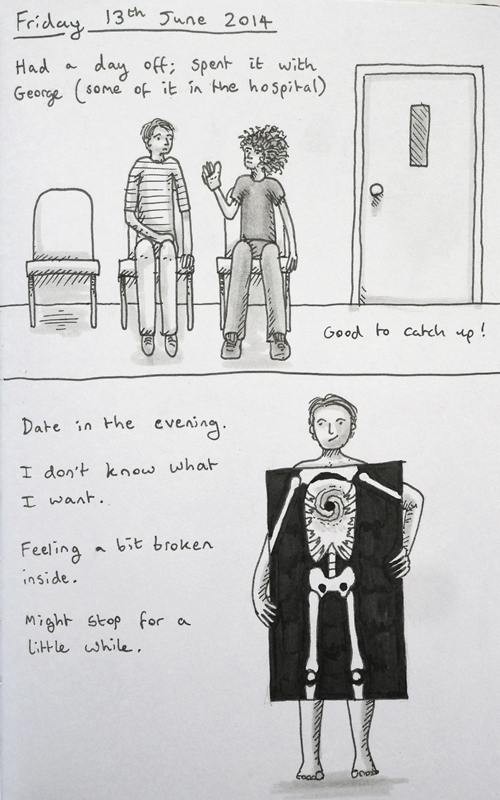 Friday 13th June 2014
Had a day off; spent it with
George (some of it in the hospital)
Good to catch up!
Date in the evening.
I don't know what
I want.
Feeling a bit broken
inside.
Might stop for a
little while.